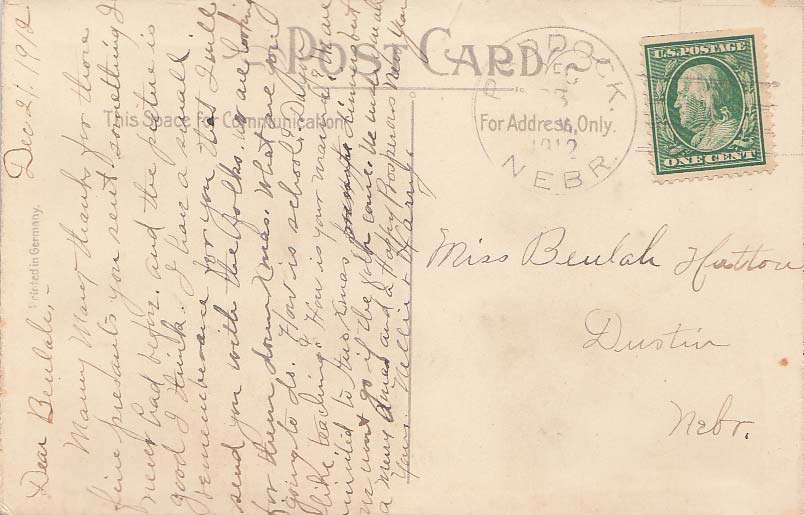 POST CARD
This Space for Communication
For Address, Only.
Printed in Germany.
U.S. POSTAGE
ONE CENT
DEC
1912
NEBR.
Dec 21, 1912
Dear Beulah,-
Many Many thanks for those
fine presants you sent something I
never had before, and the picture is
good I think. I have a small
rememberance for you that I will
send you with the folks. we are looking
for them down Xmas. What are you
going to do. How is school? Do you
like teaching? How is your mama? We are
invited to this Xmas dinner but
we wont go if the folks come. We wish you all
a Merry Xmas and a Happy Prosperous New Year
Yours. Nellie & Harry
Miss Beulah Hutton
Dustin
Nebr.